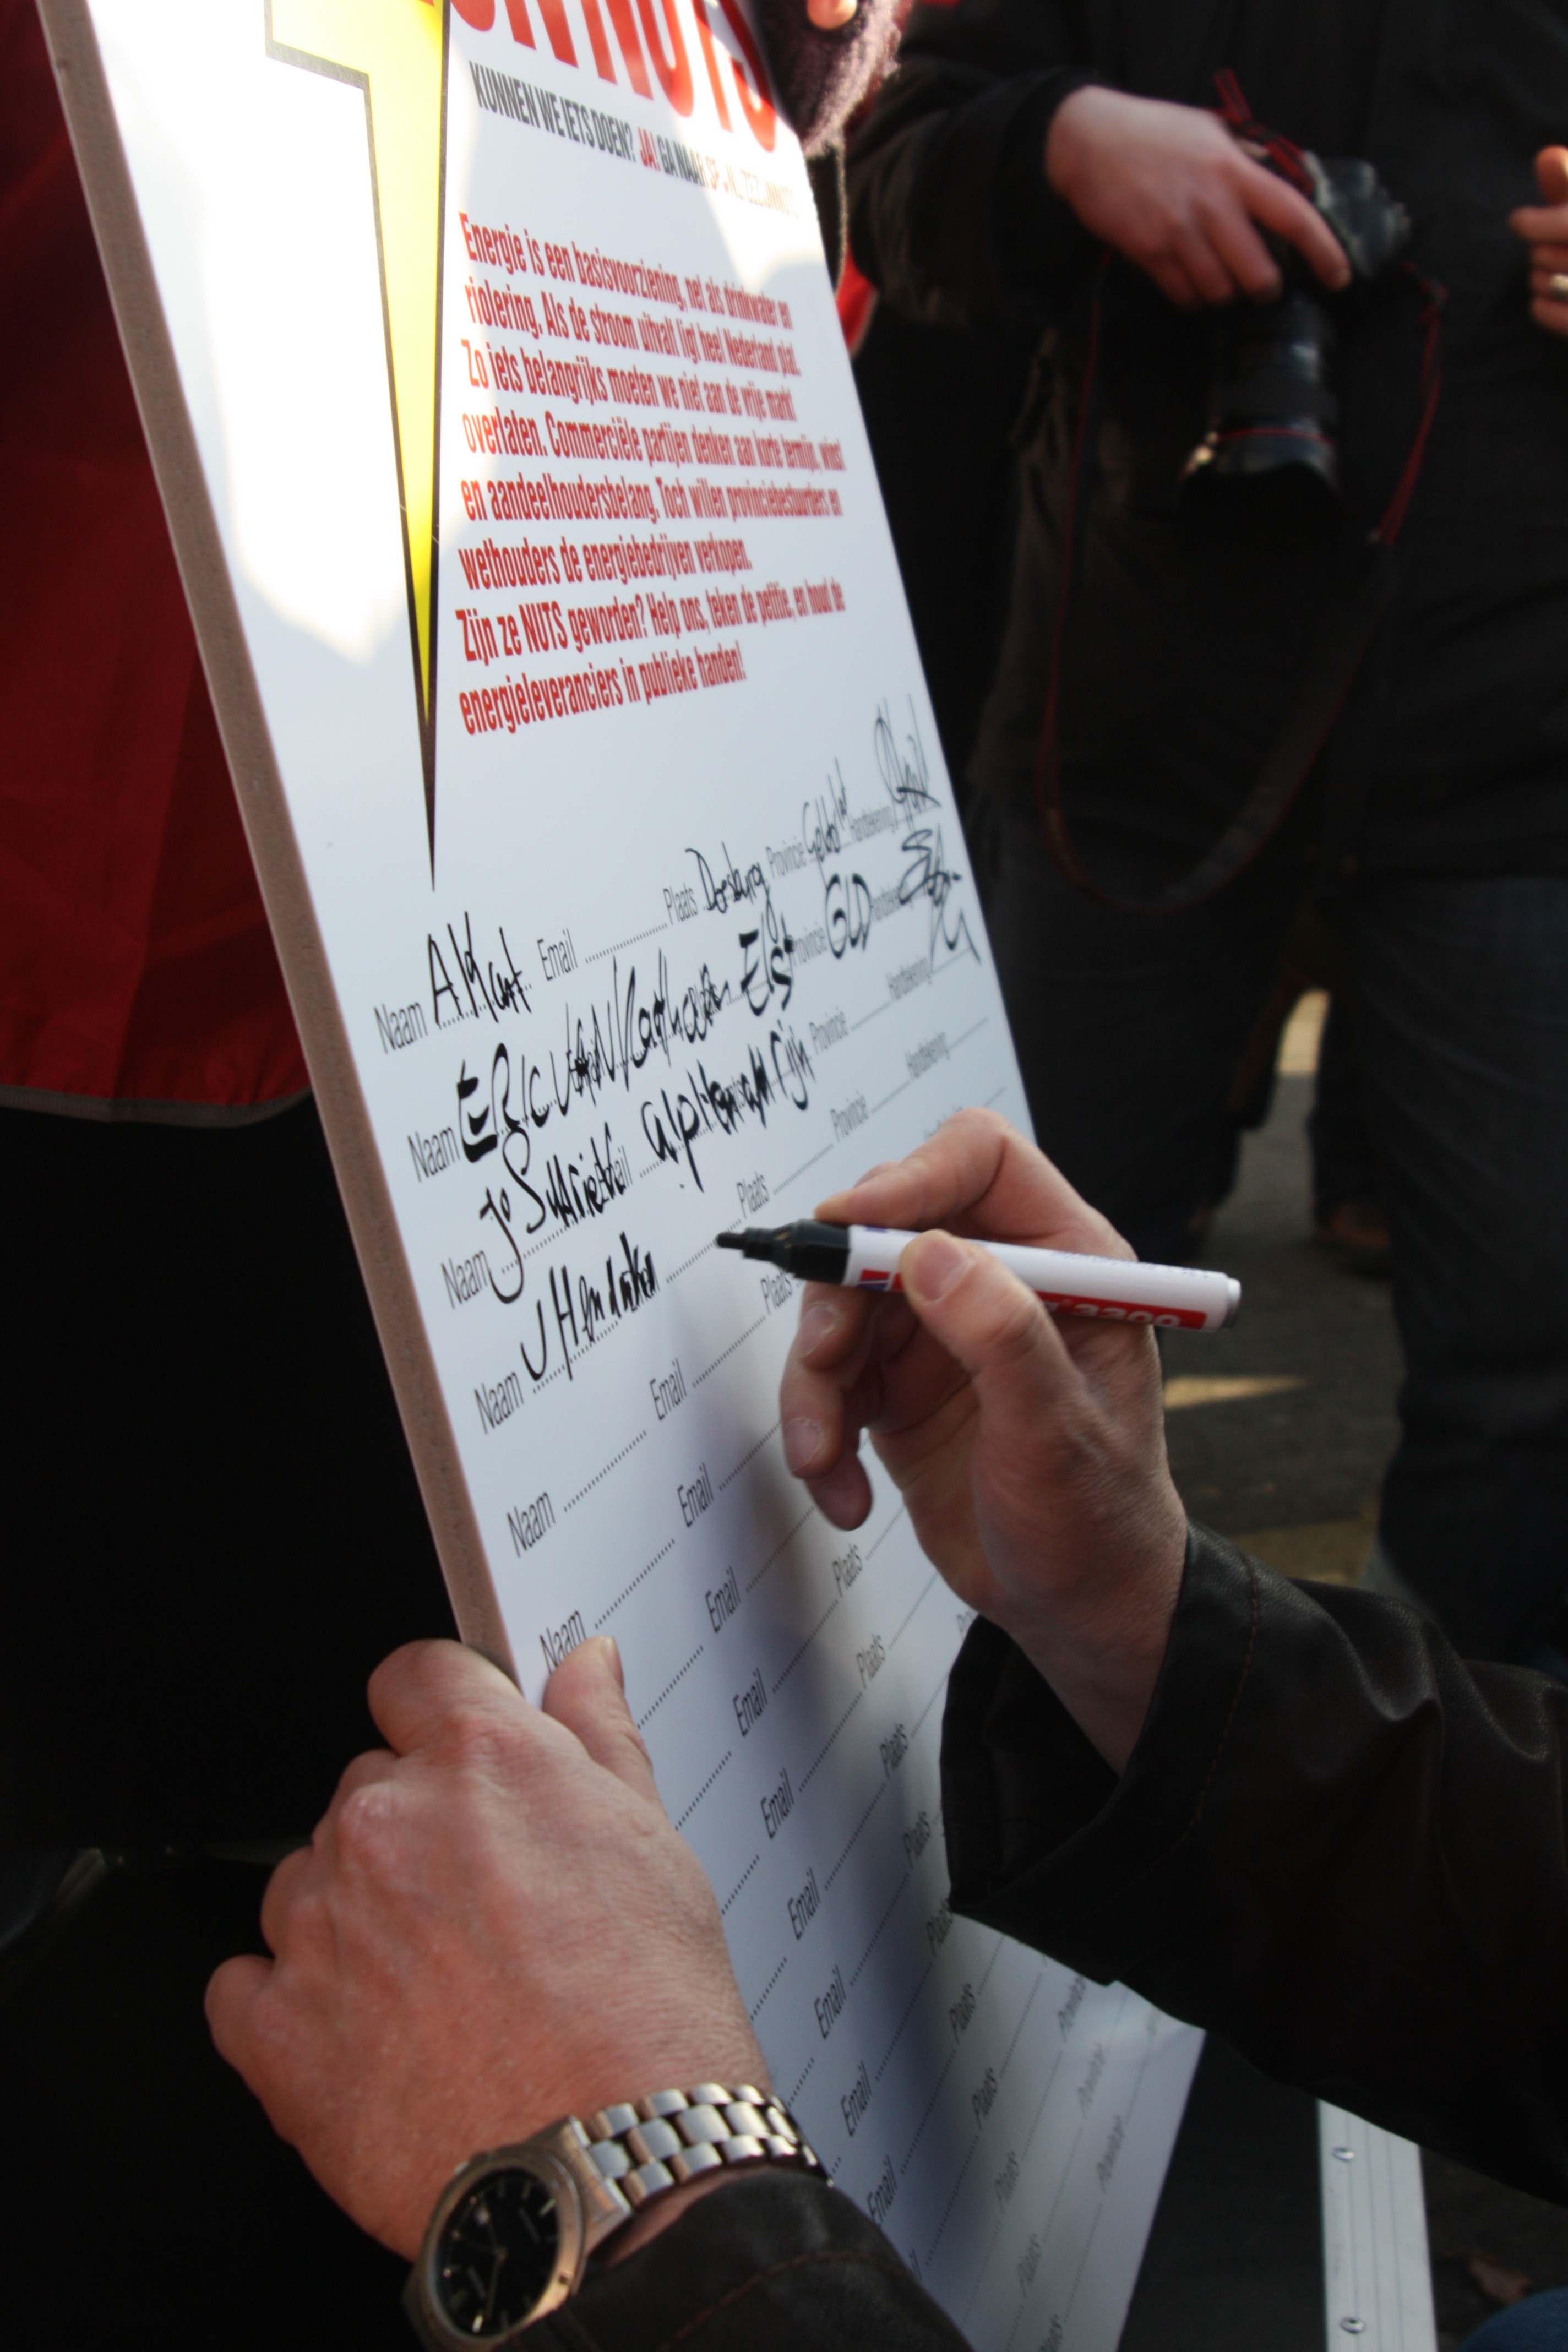 NUTS
KUNNEN WE IETS DOEN? JA! GA NAAR SP.NL/ZEZIJNNUTS
Energie is een basisvoorziening, net als drinkwater en
riolering. Als de stroom uitvalt ligt heel Nederland plat.
Zo iets belangrijks moeten we niet aan de vrije markt
overlaten. Commerciële partijen denken aan korte termijn, winst
en aandeelhoudersbelang. Toch willen provinciebestuurders en
wethouders de energiebedrijven verkopen.
Zijn ze NUTS geworden? Help ons, teken de petitie, en houd de
energieleveranciers in publieke handen!
Naam Email Plaats Doesburg Provincie Handtekening
Naam ERIC VAN Elst Provincie GLD Handtekening
Naam Jo Email alphen a/d Rijn Provincie Handtekening
Naam J Plaats Provincie Handtekening
Naam Email Plaats
Naam Email
Email Plaats
Email Plaats
Email Plaats
Email Plaats
Email Plaats
Email Plaats Provincie
Email Plaats Provincie
Plaats Provincie
Plaats
Plaats
3300